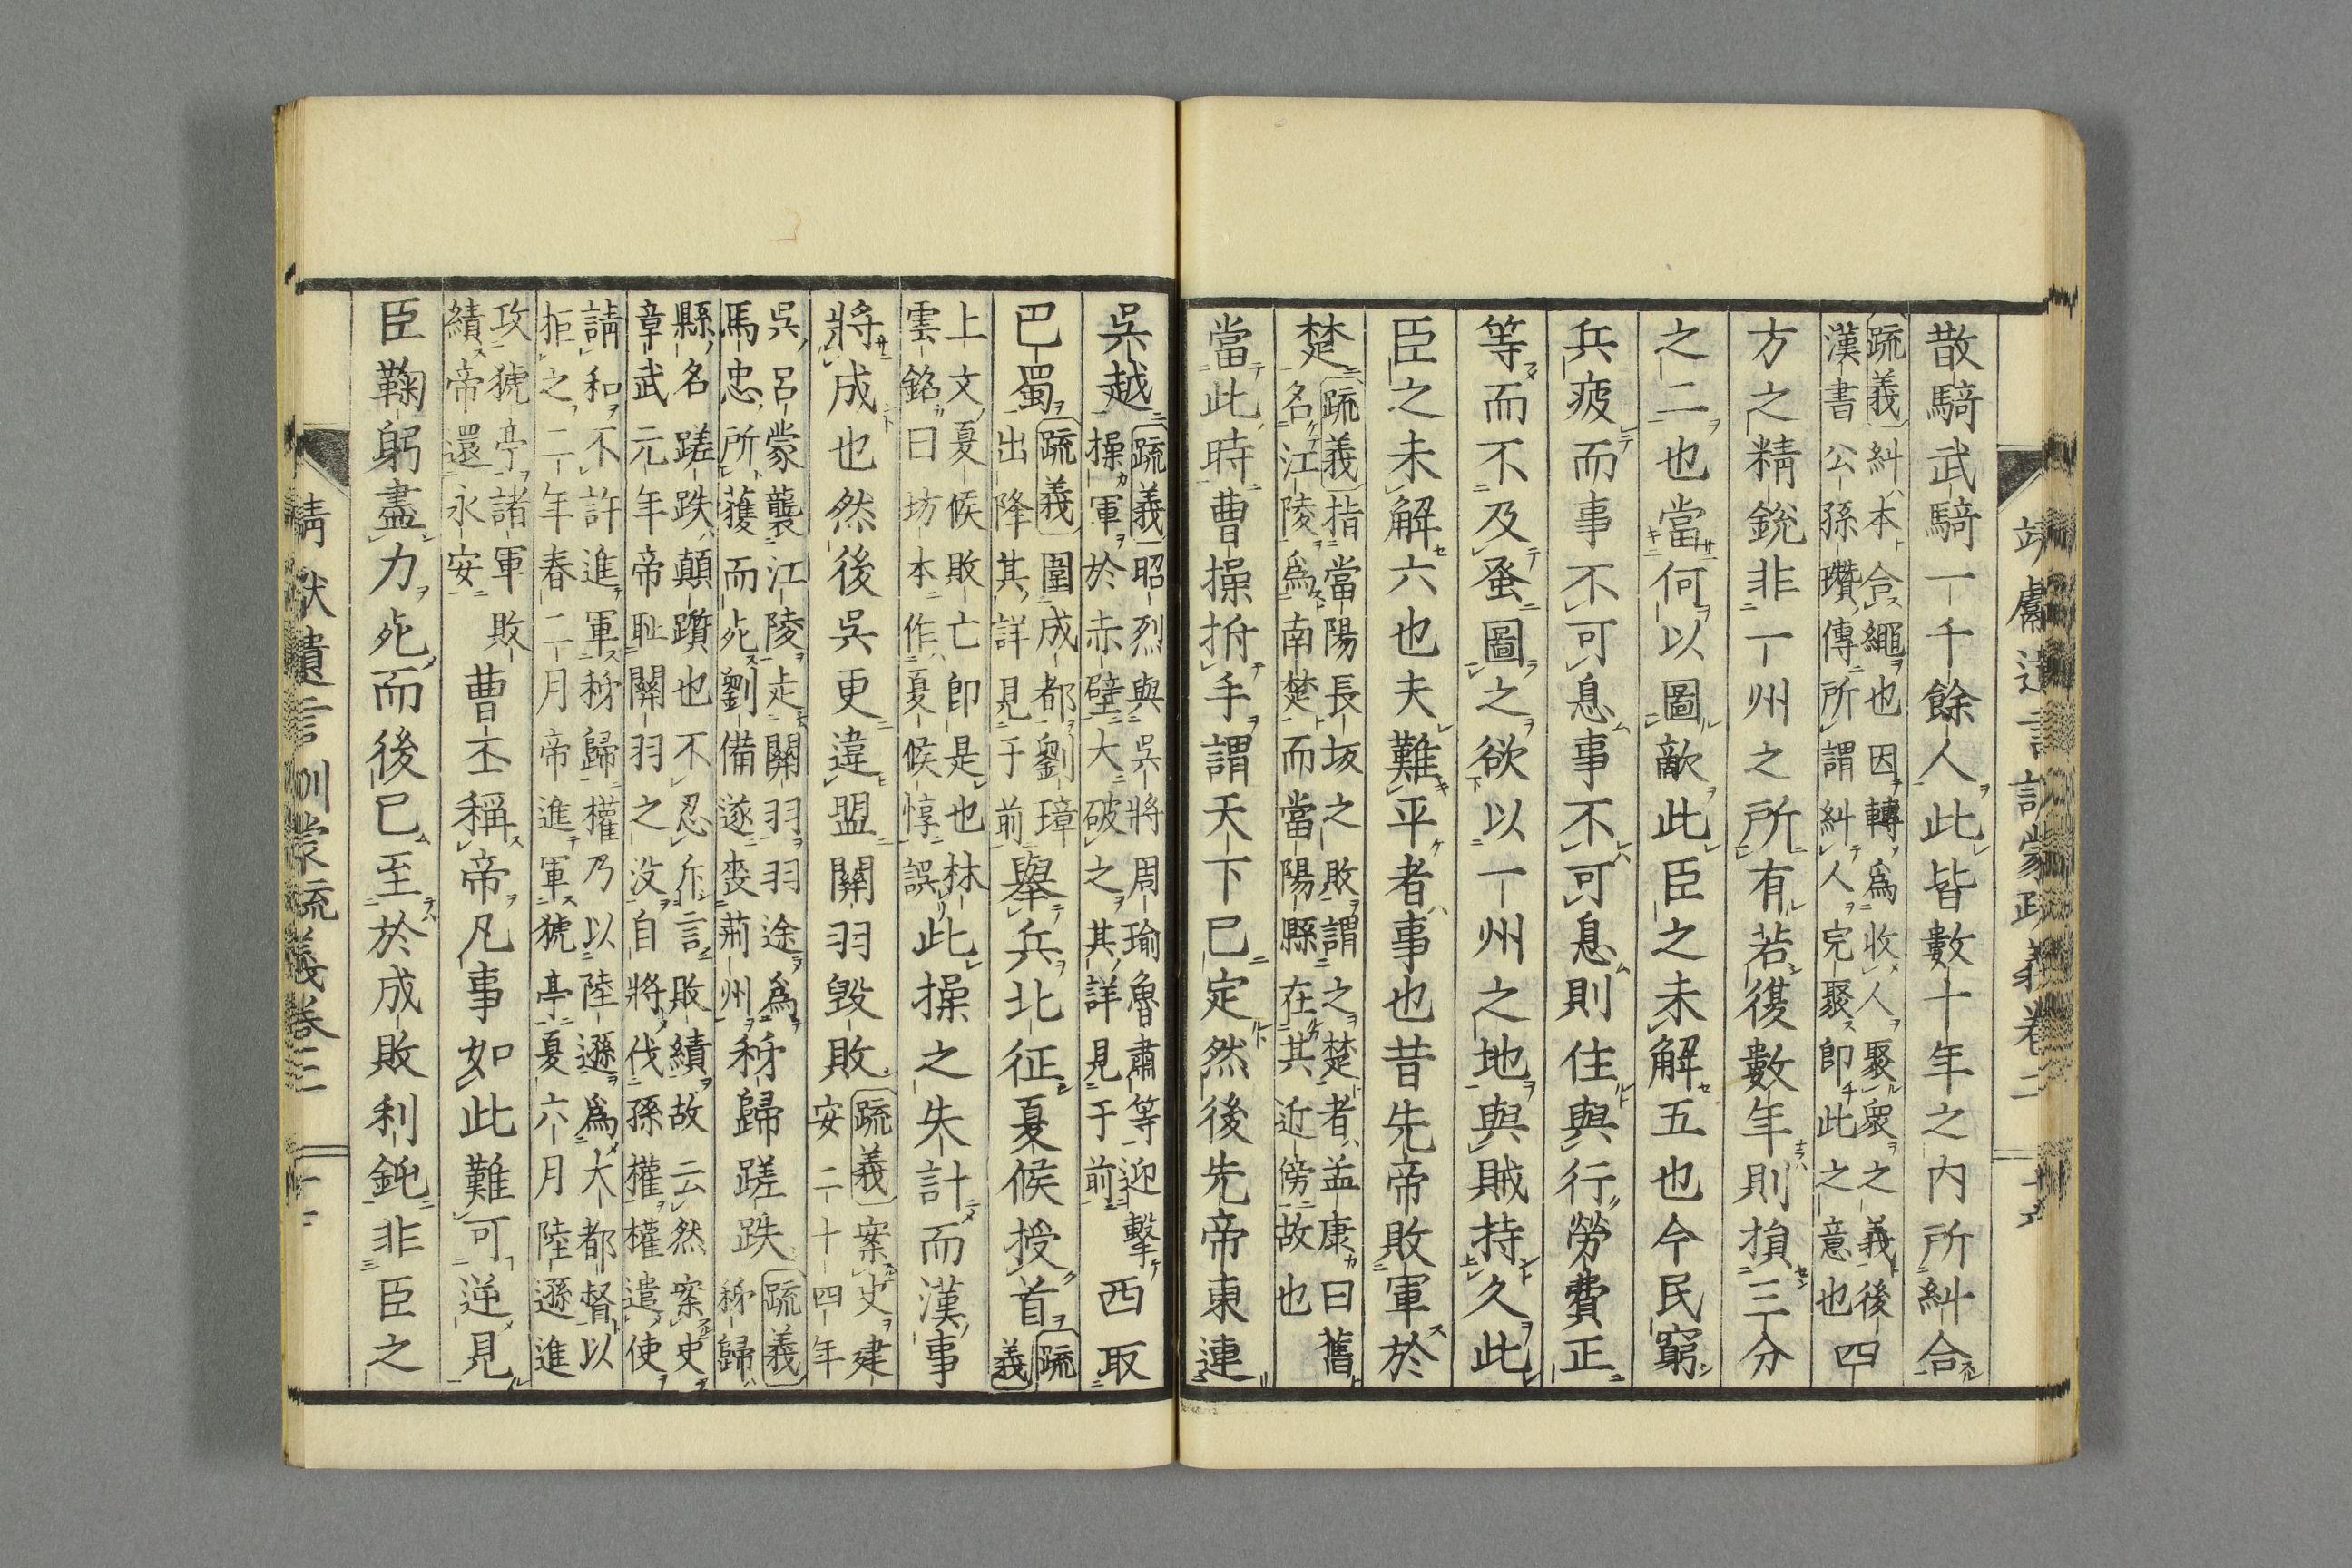 散騎武騎一千餘人此皆數十年之内所糾合
疏義糾本合繩也因轉爲收人聚衆之義後
漢書公孫瓚傳所謂糾人完聚卽此之意也
四
方之精鋭非一州之所有若復數年則損三分
之二也當何以圖敵此臣之未解五也今民窮
兵疲而事不可息事不可息則住與行勞費正
等而不及蚤圖之欲以一州之地與賊持久此
臣之未解六也夫難平者事也昔先帝敗軍於
楚
疏義指當陽長坂之敗謂之楚者盖康曰舊
名江陵爲南楚而當陽縣在其近傍故也
當此時曹操拊手謂天下已定然後先帝東連
吳越
疏義昭烈與吳將周瑜魯肅等迎擊
操軍於赤壁大破之其詳見于前
西取
巴蜀
疏義圍成都劉璋
出降其詳見于前
舉兵北征夏侯授首
疏
義
上文夏侯敗亡即是也林
雲銘曰坊本作夏侯惇誤
此操之失計而漢事
將成也然後吳更違盟關羽毀敗
疏義案史建
安二十四年
吳呂蒙襲江陵走關羽羽途爲
馬忠所獲而死劉備遂喪荊州
秭歸蹉跌
疏義
秭歸
縣名蹉跌顛躓也不忍斥言敗績故云然案史
章武元年帝耻關羽之没自將伐孫權權遣使
請和不許進軍秭歸權乃以陸遜爲大都督以
拒之二年春二月帝進軍猇亭夏六月陸遜進
攻猇亭諸軍敗
績帝還永安
曹丕稱帝凡事如此難可逆見
臣鞠躬盡力死而後已至於成敗利鈍非臣之